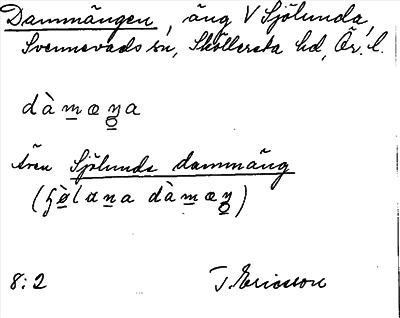 Dammängen, äng V Sjölunda,
Svennevads sn, Sköllersta hd, Ör. l.
dàmæŋa
Även Sjölunda dammäng
8:2 T. Ericsson